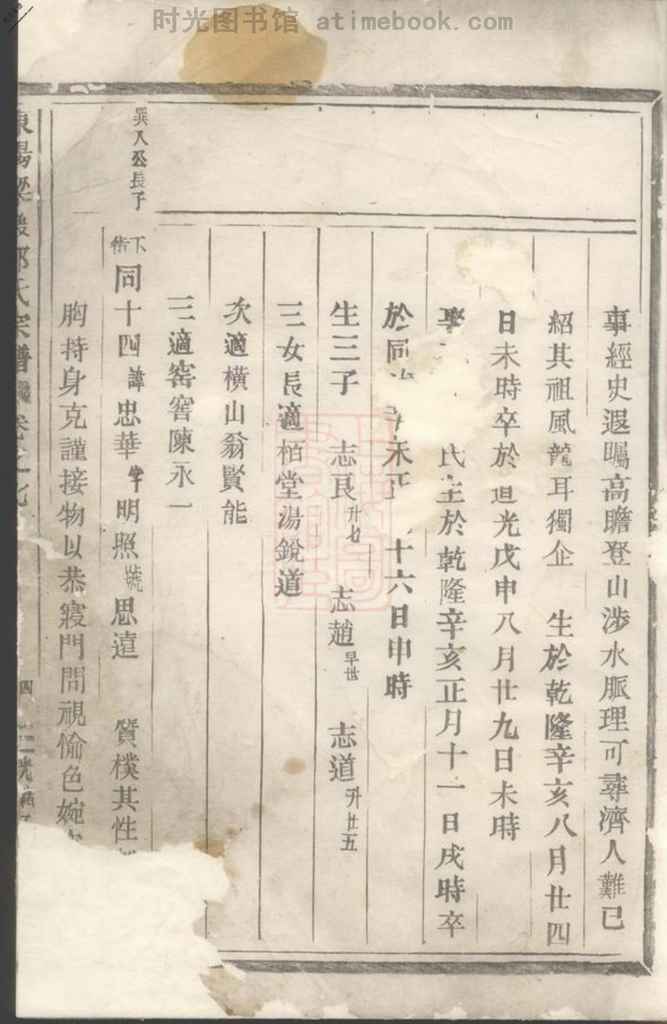 时光图书馆 atimebook.com
事經史遐矚高瞻登山涉水脈理可尋濟人難已
紹其祖風龍耳獨企 生於乾隆辛亥八月廿四
日未時卒於道光戊申八月廿九日未時
氏生於乾隆辛亥正月十一日戌時卒
於同 十六日申時
生三子 志良升七 志趙早世 志道升廿五
三女長適柏堂湯銳道
次適橫山翁賢能
三適窑窖陳永一
巽人公長子
同十四諱忠華字明照號思遠 質樸其性
胸持身克謹接物以恭寢門問視愉色婉
氏宗譜